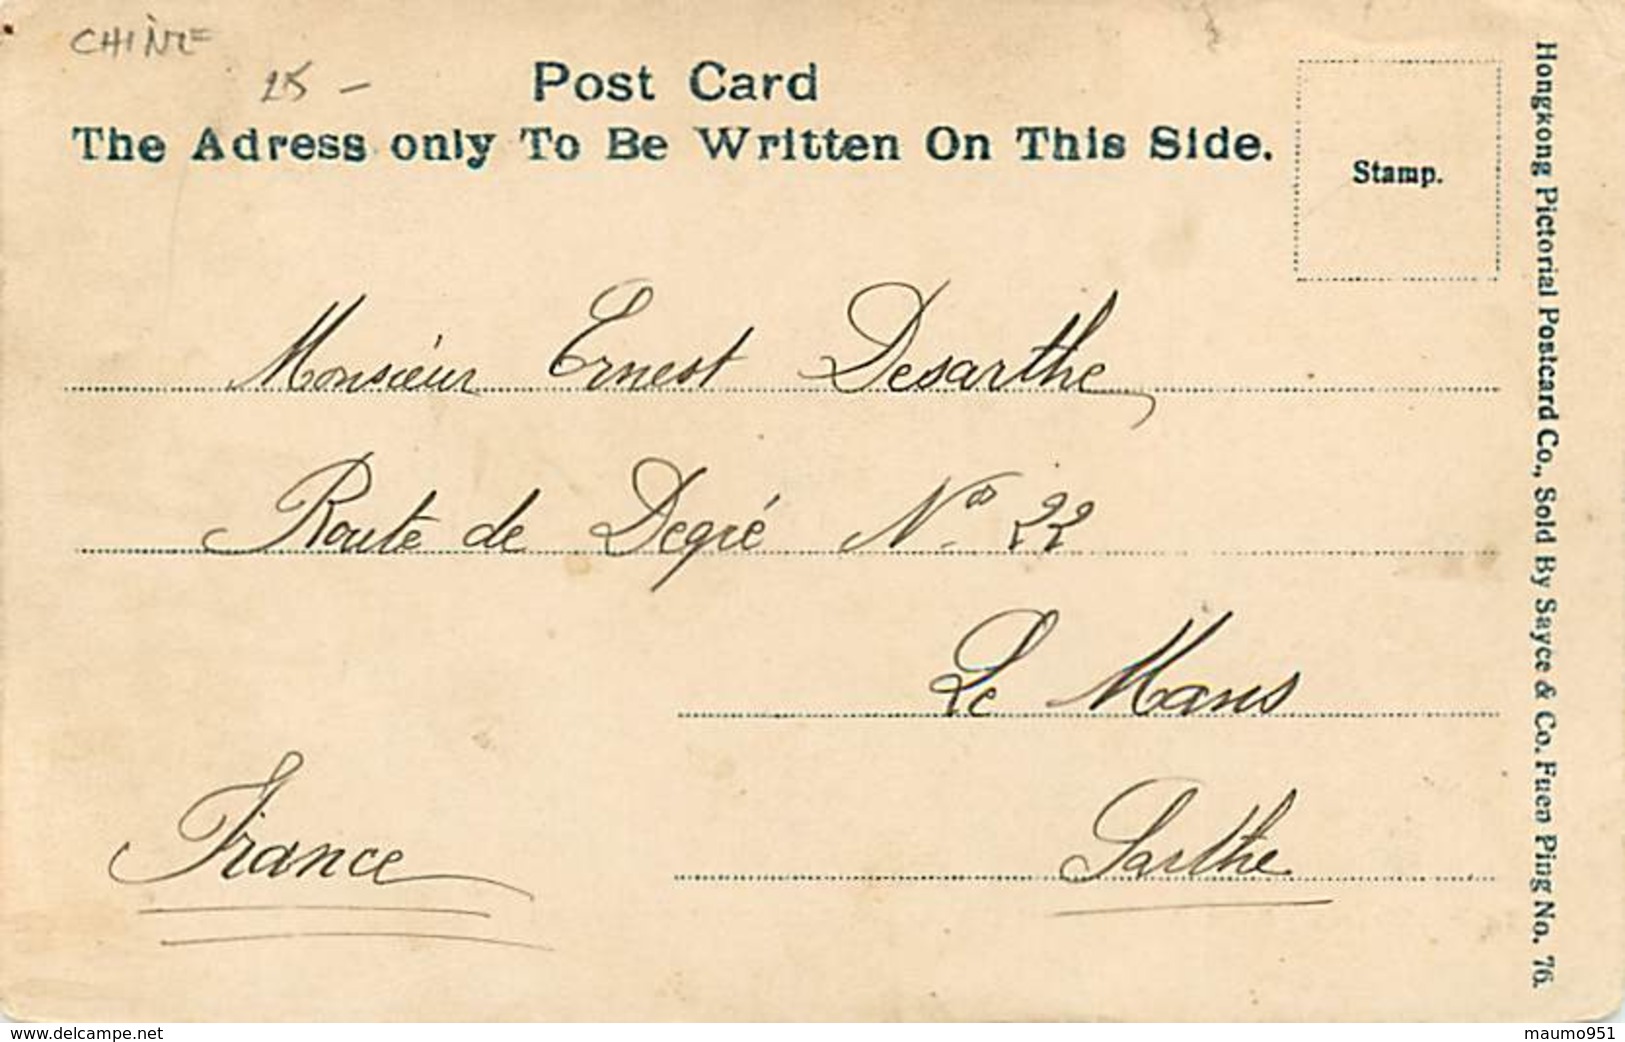 CHINE
25 -
Post Card
The Adress only To Be Written On This Side.
Stamp.
Monsieur Ernest Desarthe
Route de Degré No 22
Le Mans
Sarthe
France
Hongkong Pictorial Postcard Co., Sold By Sayce & Co. Fuen Ping No. 76.
www.delcampe.net
maumo951